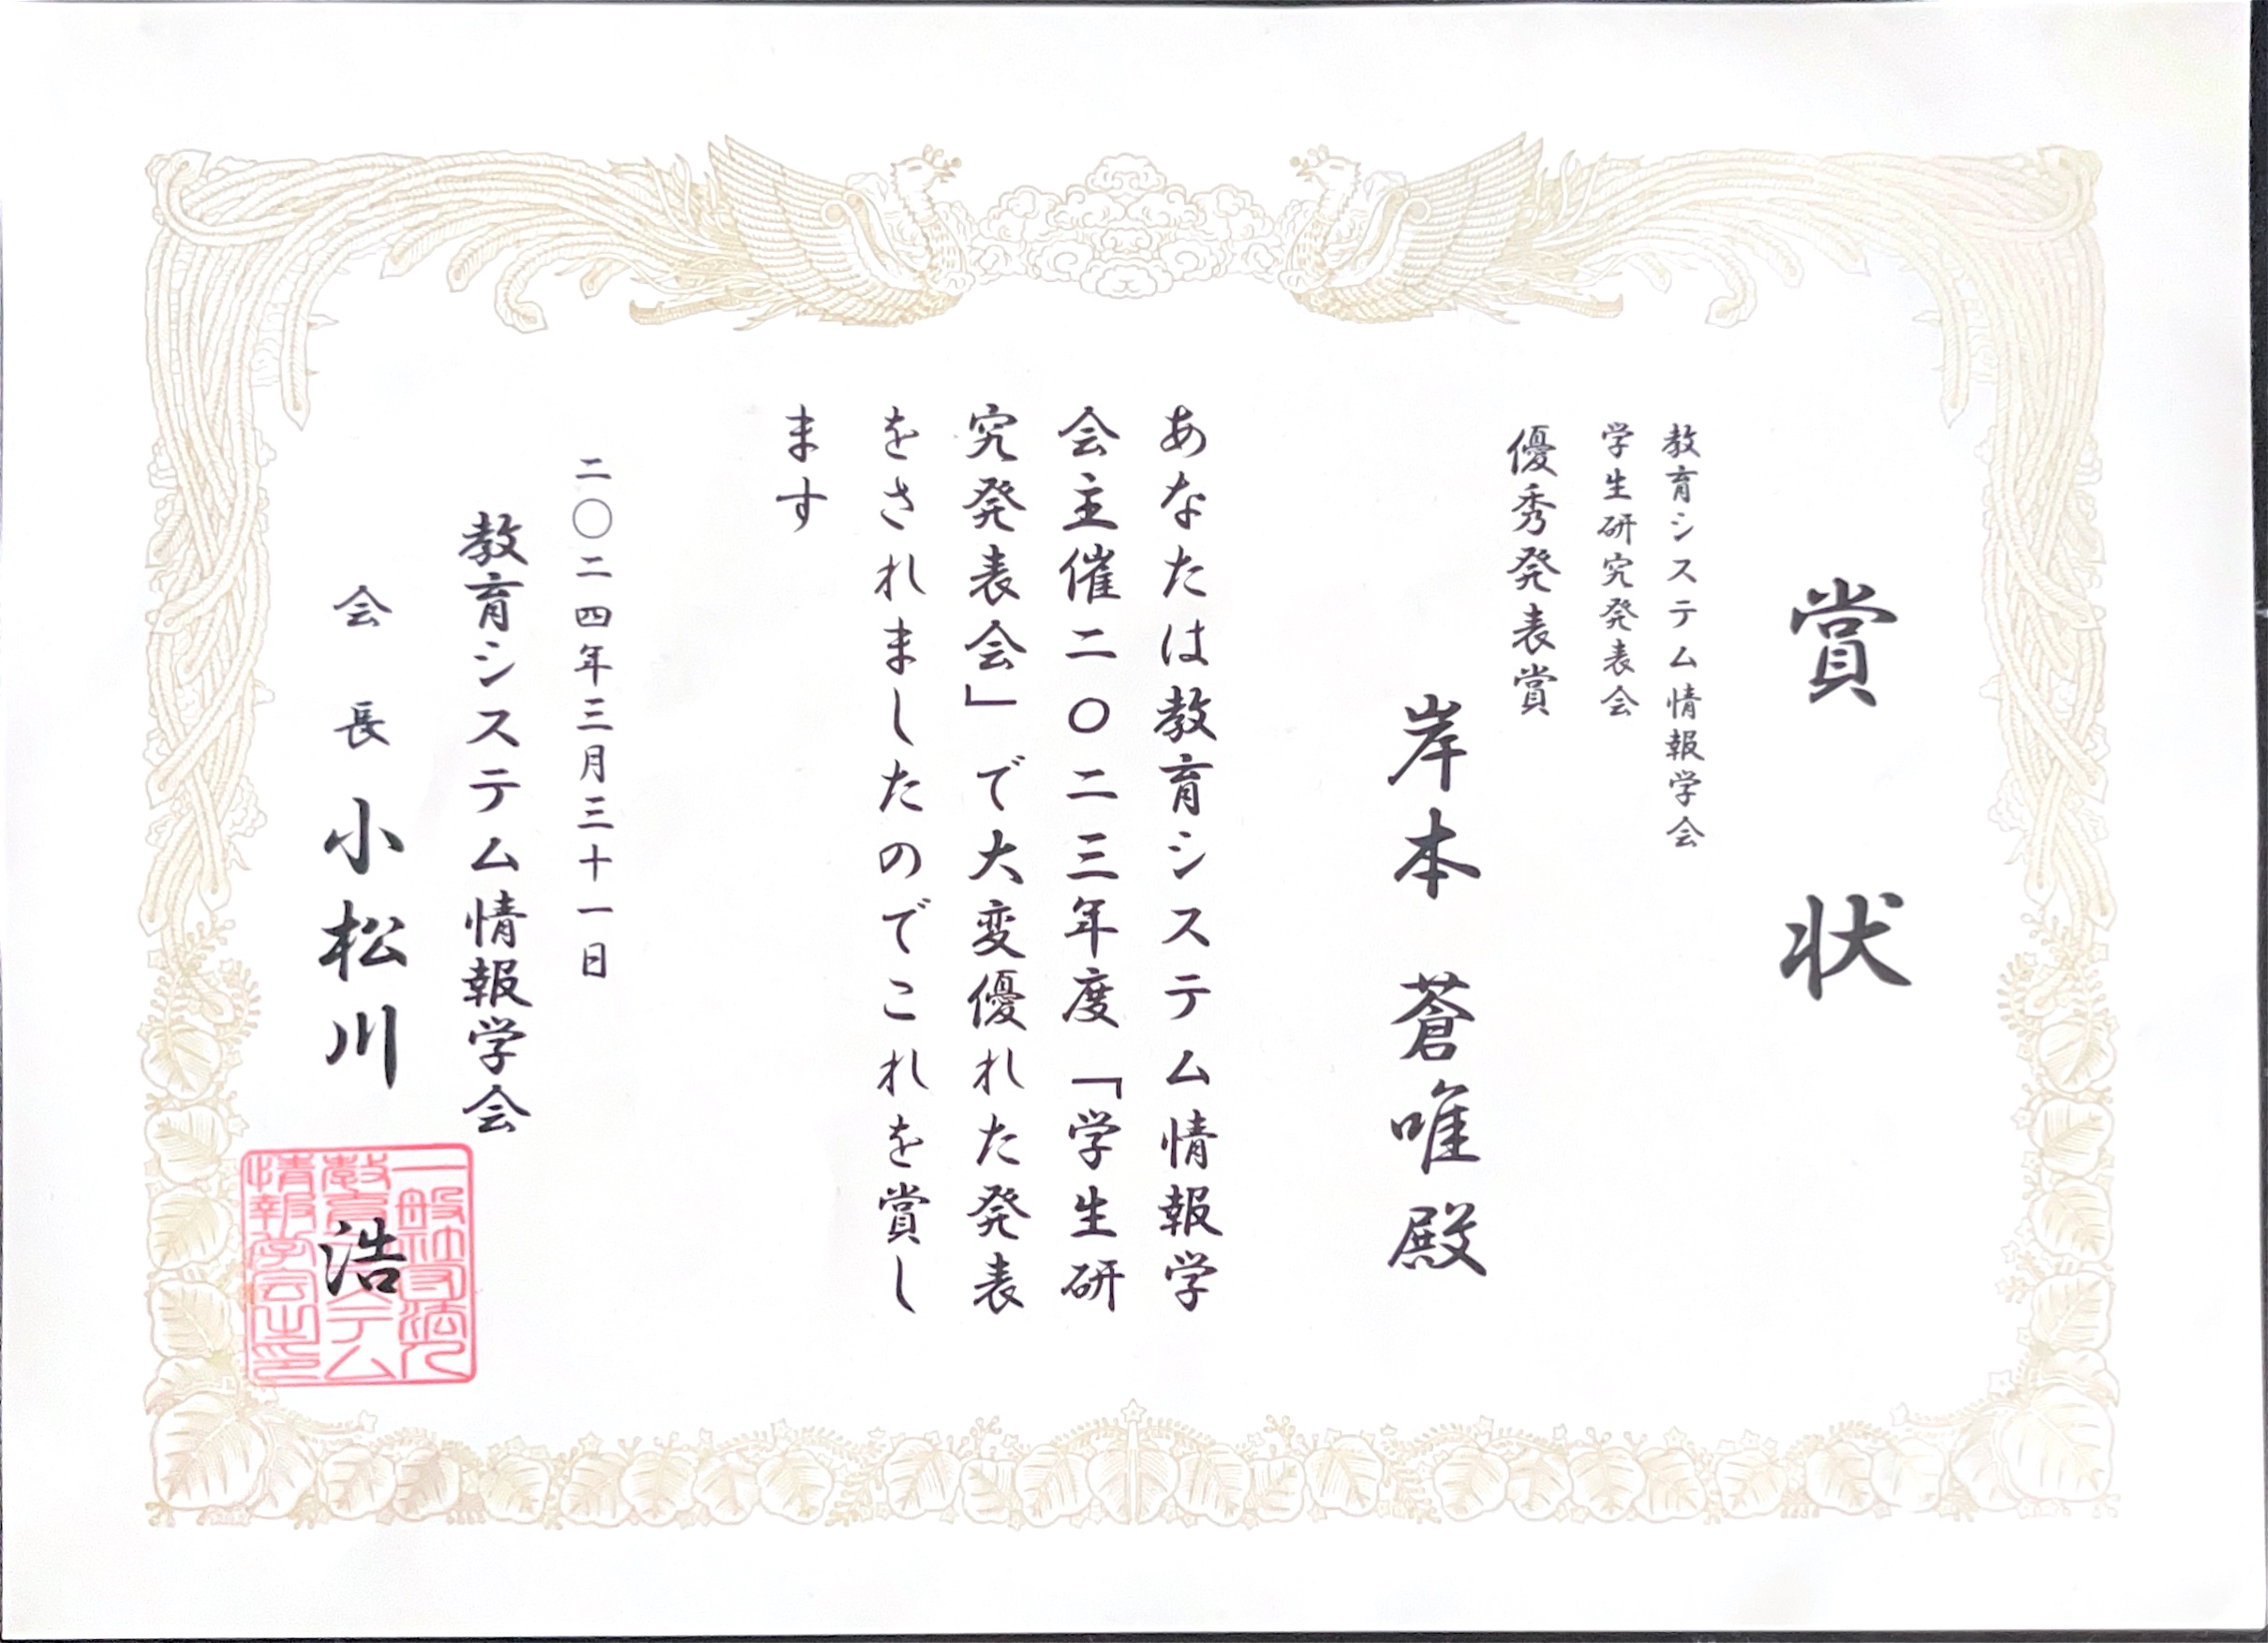 賞状
教育システム情報学会
学生研究発表会
優秀発表賞
岸本 蒼唯 殿
あなたは教育システム情報学
会主催二〇二三年度「学生研
究発表会」で大変優れた発表
をされましたのでこれを賞し
ます
二〇二四年三月三十一日
教育システム情報学会
会長 小松川 浩
一般社団法人
教育システム
情報学会之印